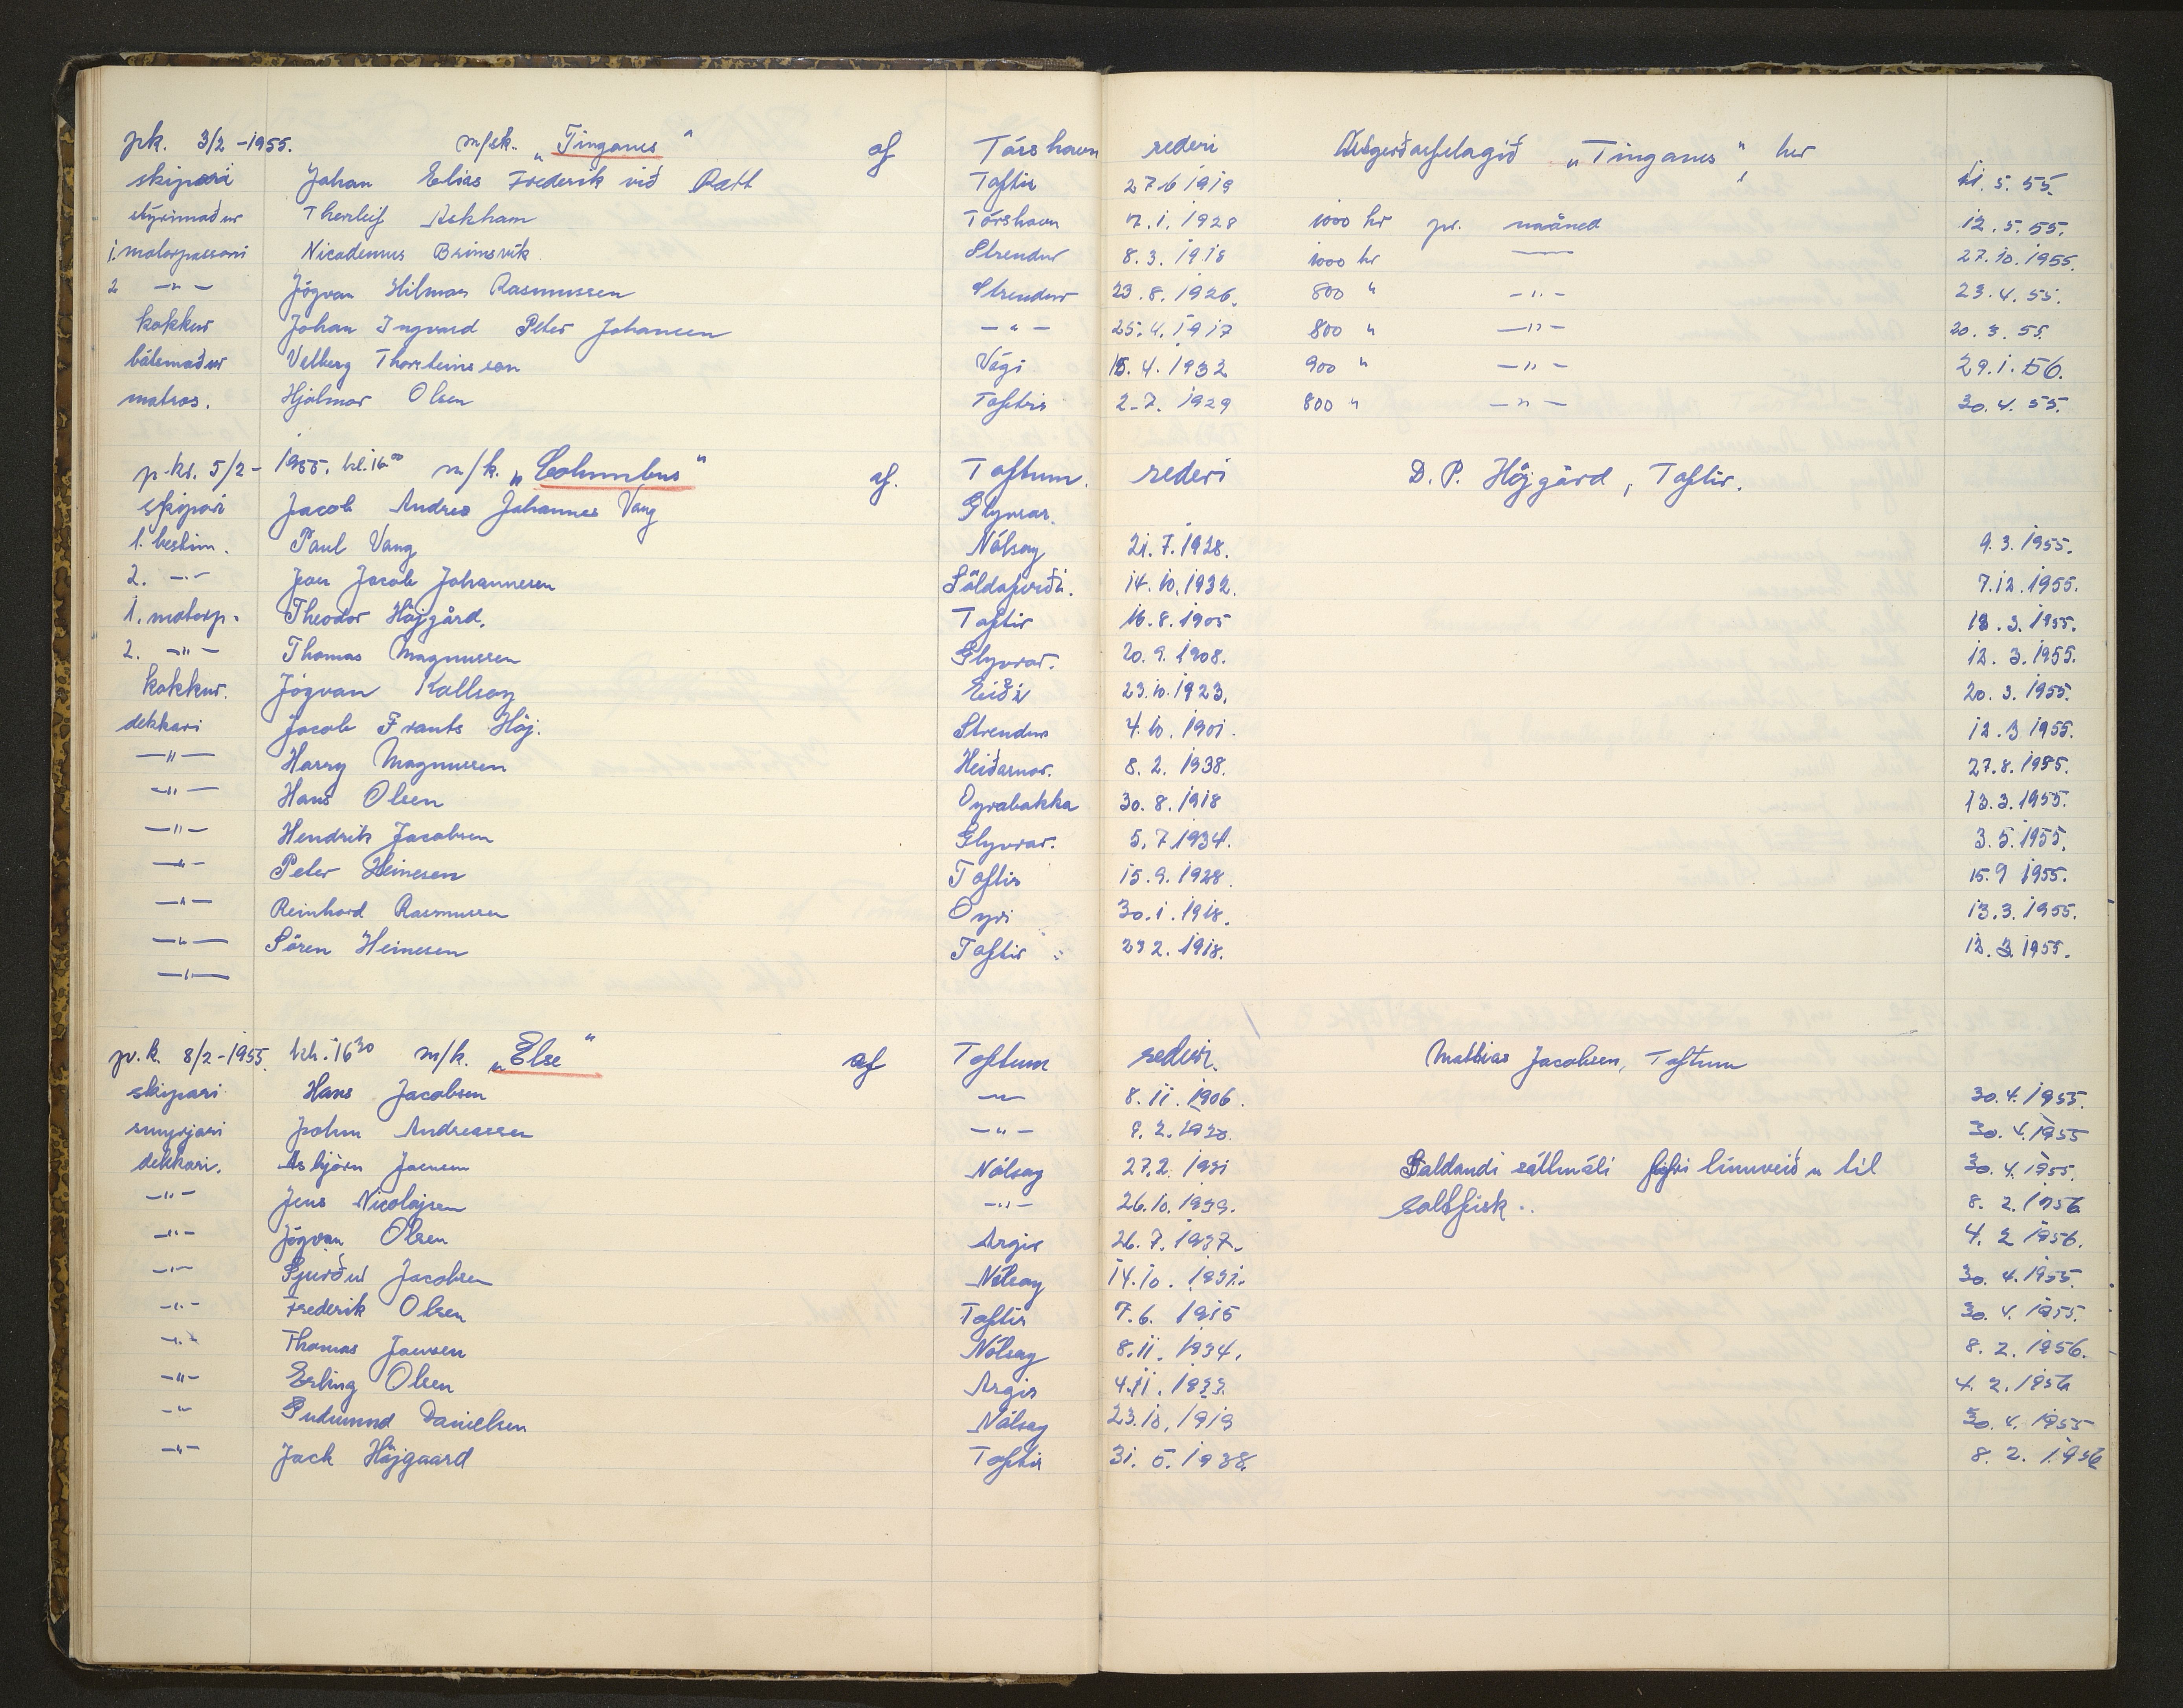 pk. 3/2 -1955. m/sk. „Tinganes" af Tórshavn rederi Útgerðarfelagið „Tinganes", her
skipari Johan Elias Frederik við Rætt Toftir 27.6 1919 11. 5. 55.
stýrimaður Thorleif Askham Tórshavn 7. 1. 1928 1000 kr pr. måned 12. 5. 55.
1. motorpassari Nicodemus Brimsvík Strendur 8. 3. 1918 1000 kr — 27. 10. 1955.
2 —„— Jógvan Hilmar Rasmussen Strendur 23. 8. 1926. 800 " —„— 23. 4. 55.
kokkur Johan Ingvard Peter Johansen —„— 25. 4. 1917 800 " —„— 20. 3. 55.
bátsmaður Valberg Thorsteinsson Vági 15. 4. 1932 900 " —„— 29. 1. 56.
matros. Hjalmar Olsen Toftir 2-7. 1929 800 " —„— 30. 4. 55.
p. kl. 5/2- 1955. kl. 16⁰⁰ m/k. „Columbus" af. Toftum. rederi D. P. Højgård, Toftir.
skipari Jacob Andreas Johannes Vang Glyvrar.
1. bestm. Paul Vang Nólsoy 21. 7. 1928. 9. 3. 1955.
2. —„— Jens Jacob Johannesen Söldafirði. 14. 10. 1932. 7. 12. 1955.
1. motorp. Theodor Højgård. Toftir 16. 8. 1905 18. 3. 1955.
2. —„— Thomas Magnussen Glyvrar. 20. 9. 1908. 12. 3. 1955.
kokkur. Jógvan Kallsoy Eiði 23. 10. 1923. 20. 3. 1955.
dekkari Jacob Frants Höj. Strendur 4. 10. 1901. 12. 3 1955.
—„— Harry Magnussen Heiðarnar. 8. 2. 1938. 27. 8. 1955.
—„— Hans Olsen Oyrabakka 30. 8. 1918 13. 3. 1955.
—„— Hendrik Jacobsen Glyvrar. 5. 7 1934. 3. 5. 1955.
—„— Peter Heinesen Toftir 15. 9. 1928. 15. 9 1955.
—„— Reinhard Rasmussen Oyri 30. 1. 1918. 13. 3. 1955.
—„— Sören Heinesen Toftir 23 2. 1918. 12. 3. 1955.
—„—
p. k. 8/2-1955. kl. 16³⁰ m/k. „Else" af Toftum rederi. Mattias Jacobsen, Toftum
skipari Hans Jacobsen —„— 8. 11. 1906. 30. 4. 1955.
smyrjari John Andreassen —„— 30. 4. 1955
dekkari. Asbjörn Joensen Nólsoy 27. 2. 1931 Galdandi sáttmáli fyri línuveiðu til 30. 4. 1955.
—„— Jens Nicolajsen —„— 26. 10. 1939. saltfisk. 8. 2. 1956
—„— Jógvan Olsen Argir 26. 7. 1937. 4. 2 1956.
—„— Sjúrður Jacobsen Nólsoy 14. 10. 1931. 30. 4. 1955.
—„— Frederik Olsen Toftir 7. 6. 1915 30. 4. 1955.
—„— Thomas Joensen Nólsoy 8. 11. 1934. 8. 2. 1956.
—„— Erling Olsen Argir 4. 11. 1933. 4. 2. 1956
—„— Gudmund Danielsen Nólsoy 23. 10. 1919 30. 4. 1955
—„— Jack Højgaard Toftir 31. 5. 1938. 8. 2. 1956